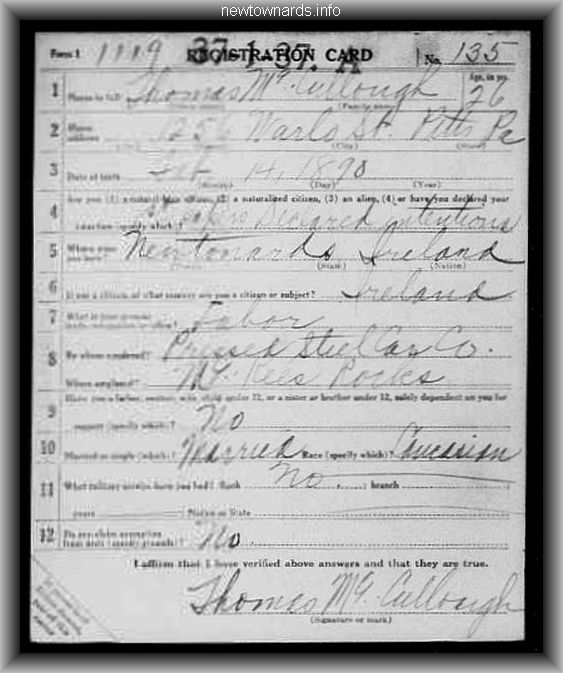 newtownards.info
Form 1 1119 37-1-37. A
REGISTRATION CARD No. 135
1 Name in full Thomas Mc Cullough Age, in yrs. 26
(Family name)
2 Home address Warlo St. Pitts Pa
(City) (State)
3 Date of birth 14, 1890
(Month) (Day) (Year)
4 Are you (1) a natural born citizen, (2) a naturalized citizen, (3) an alien, (4) or have you declared your
intention (specify which)? Papers Declared intentions
5 Where were you born? Newtonards Ireland
(State) (Nation)
6 If not a citizen, of what country are you a citizen or subject? Ireland
7 What is your present trade, occupation, or office? Labor
8 By whom employed? Pressed Steel Car Co.
Where employed? Mc Kees Rocks
9 Have you a father, mother, wife, child under 12, or a sister or brother under 12, solely dependent on you for
support (specify which)? No
10 Married or single (which)? Married Race (specify which)? Caucasian
11 What military service have you had? Rank No. ; branch
years Nation or State
12 Do you claim exemption from draft (specify grounds)? No
I affirm that I have verified above answers and that they are true.
Thomas Mc Cullough
(Signature or mark)